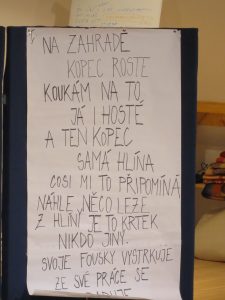 NA ZAHRADĚ
KOPEC ROSTE
KOUKÁM NA TO
JÁ I HOSTÉ
A TEN KOPEC
SAMÁ HLÍNA
COSI MI TO PŘIPOMÍNÁ
NÁHLE NĚCO LEZE
Z HLÍNY JE TO KRTEK
NIKDO JINÝ.
SVOJE FOUSKY VYSTRKUJE
ZE SVÉ PRÁCE SE